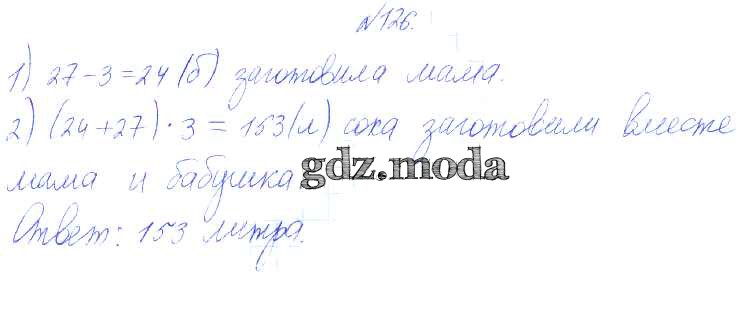 №126.
1) 27-3=24 (б) заготовила мама.
2) (24+27)·3=153(л) сока заготовили вместе
мама и бабушка gdz.moda
Ответ: 153 литра.